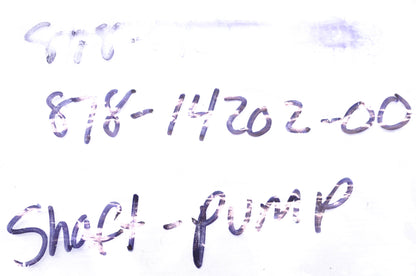 878-
878-14202-00
Shaft-PUMP